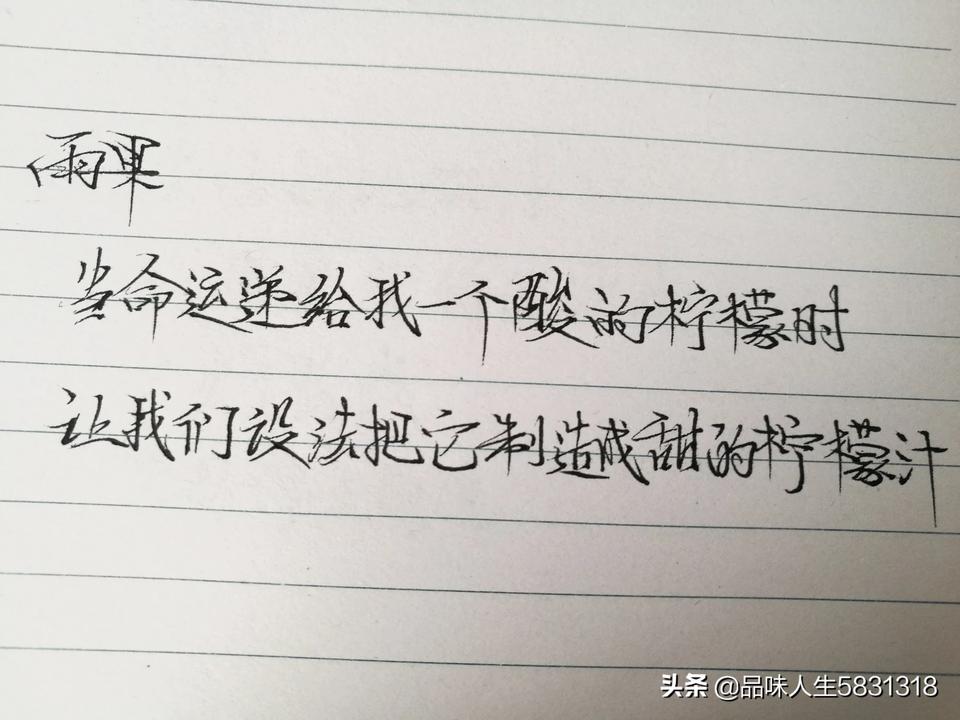 雨果
当命运递给我一个酸的柠檬时
让我们设法把它制造成甜的柠檬汁
头条 @品味人生5831318